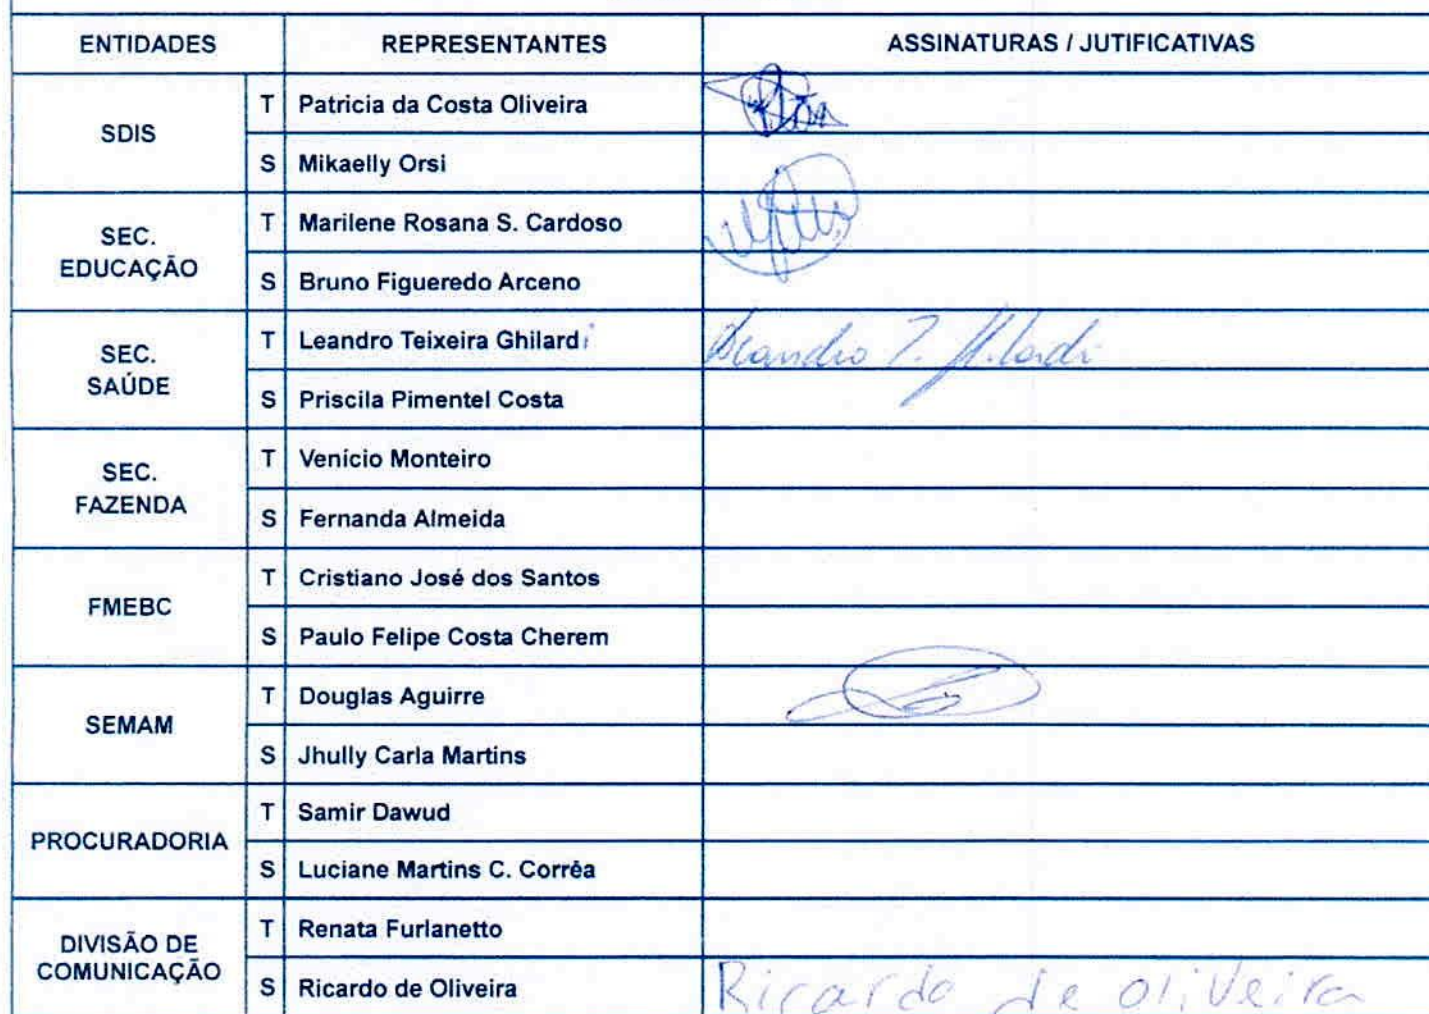 ENTIDADES REPRESENTANTES ASSINATURAS / JUTIFICATIVAS
SDIS
T Patricia da Costa Oliveira
S Mikaelly Orsi
SEC.
EDUCAÇÃO
T Marilene Rosana S. Cardoso
S Bruno Figueredo Arceno
SEC.
SAÚDE
T Leandro Teixeira Ghilardi Leandro T. Ghilardi
S Priscila Pimentel Costa
SEC.
FAZENDA
T Venício Monteiro
S Fernanda Almeida
FMEBC
T Cristiano José dos Santos
S Paulo Felipe Costa Cherem
SEMAM
T Douglas Aguirre
S Jhully Carla Martins
PROCURADORIA
T Samir Dawud
S Luciane Martins C. Corrêa
DIVISÃO DE
COMUNICAÇÃO
T Renata Furlanetto
S Ricardo de Oliveira Ricardo de Oliveira